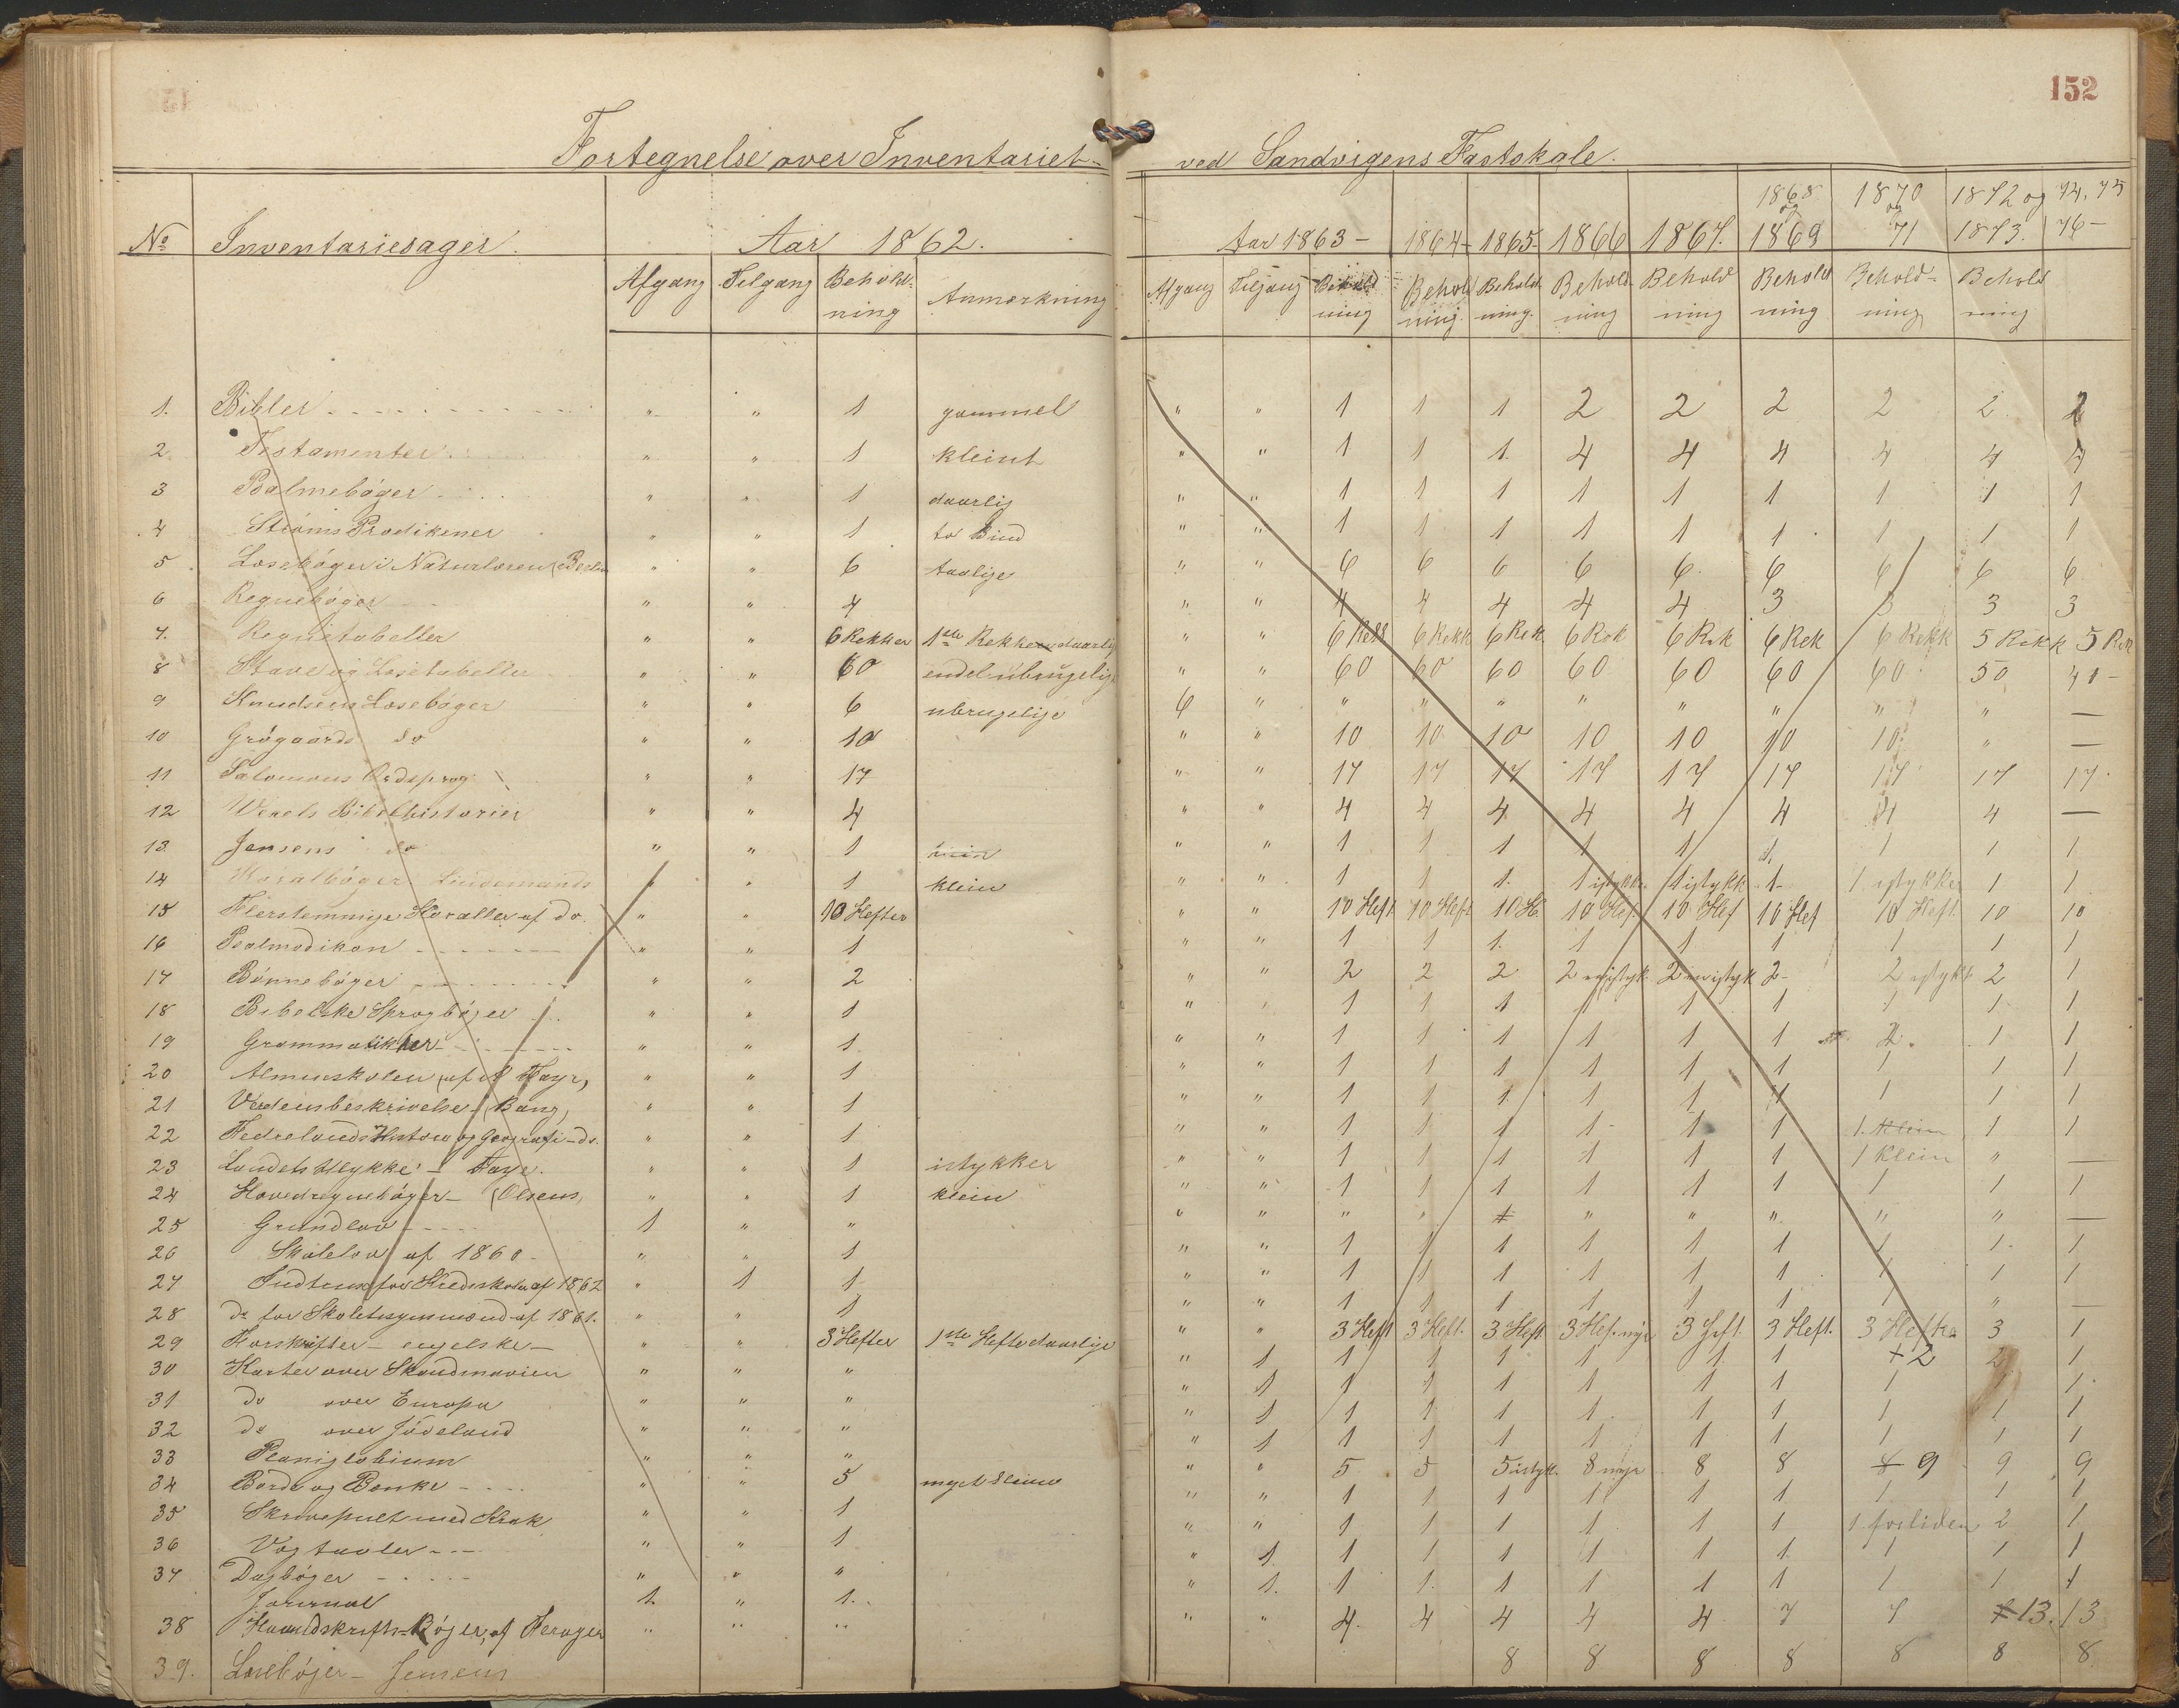 152
Fortegnelse over Inventariet ved Sandvigens Fastskole.
No Inventariesager. Aar 1862. Aar 1863 - 1864 - 1865 - 1866 1867. 1868 og 1869 1870 og 71 1872 og 1873. 74. 75 76 -
Afgang Tilgang Behold- ning Anmærkning Afgang Tilgang Behold ning Behold ning. Behold ning. Behold- ning Behold ning Behold ning Behold- ning Behold ning
1. Bibler " " 1 gammel " " 1 1 1 2 2 2 2 2. 2
2. Testamenter " " 1 kleint " " 1 1 1. 4 4 4 4 4 4
3 Psalmebøger " " 1 daarlig " " 1 1 1 1 1 1 1 1 1
4 Strøms Prædikener " " 1 to Bind " " 1 1 1 1 1 1 1 1 1
5 Læsebøger i Naturlæren " " 6 taalige " " 6 6 6 6 6 6 6 6 6
6 Regnebøger " " 4 " " 4 4 4 4 4 3 3 3 3
7. Regnetabeller " " 6 Rekker 1ste Rekke daarlig " " 6 Rekk 6 Rekk 6 Rek 6 Rek 6 Rek 6 Rek 6 Rekk 5 Rekk 5 Rek
8 Stave og Læsetabeller " " 60 endel ubrugelige " " 60 60 60 60 60 60 60 50
9 Knudsens Læsebøger " " 6 ubrugelige 6 " " " " " " " " " —
10 Grøgaards do " " 10 " " 10 10 10 10 10 10 10 " —
11 Salomons Ordsprog " " 17 " " 17 17 17 17 17 17 17 17 17.
12 Wexels Bibelhistorier " " 4 " " 4 4 4 4 4 4 4 4 —
13 Jensens do " " 1 " " 1 1 1 1 1 1. 1 1 1
14 Koralbøger Lindemands " " 1 klein " " 1 1 1. 1 istykke 1 istykk 1- 1 istykker 1 1
15 Fierstemmige Koraller af do. " " 10 Hefter " " 10 Heft 10 Heft 10 H. 10 Hef. 10 Hef 10 Hef 10 Heft. 10 10
16 Psalmodikon " " 1 " " 1 1 1. 1 1 1 1 1 1
17 Bønnebøger " " 2 " " 2 2 2 2 2 2- 2 istykk 2 1
18 Bibelske Sprogbøger " " 1 " " 1 1 1 1 1 1 1 1 1
19 Grammatikker " " 1 " " 1 1 1 1 1 1 1 1
20 Almueskolen (af A Faye, " " 1 " " 1 1 1 1 1 1 1 1 1
21 Verdensbeskrivelse (Bang, " " 1 " " 1 1 1 1 1 1 1 1 1
22 Fedrelands Histori og Geografi - do. " " 1 " " 1 1 1 1- 1 1 1. klein 1 1
23 Landets Ulykke - Faye. " " 1 istykker " " 1 1 1 1 1 1 1 klein " —
24 Hovedregnebøger - (Olsens, " " 1 klein " " 1 1 1 1 1 1 1 1 1
25 Grundlov 1 " " " " " " " " " " " —
26 Skolelov af 1860 - " " 1 " " 1 1 1 1 1 1 1 1. 1
27 for af 1862 " 1 1 " " 1 1 1 1 1 1 1 1 1
28 do for af 1861. " " 1 " " 1 1 1 1 1 1 1 " —
29 Forskrifter - engelske - " " 3 Hefter 1ste Hefte daarlige " " 3 Heft 3 Heft. 3 Heft 3 Hef. nye 3 Heft. 3 Heft. 3 Hefter 3 1
30 Karter over Skandinavien " " " " 1 1 1 1 1 1 1 2 2 1
31 do over Europa " " " " 1 1 1 1 1 1 1 1 1 1.
32 do over Jødeland " " " " 1 1 1 1 1 1 1 1 1 1
33 Planiglobium " " " " 1 1 1 1 1 1 1 1 1 1
34 Borde og Bænke " " 5 meget kleine " " 5 5 5 istyk. 8 nye 8 8 8 9 9 9
35 Skrivepult med Krak " " 1 " " 1 1 1 1 1 1 1. 1 1
36 Vægtavler " " 1 " " 1 1 1 1 1 1 1 forliden 2 1
37 Dagbøger " " " " 1. 1 1 1 1 1 1. 1 1 1
Journal 1. " 1. " 1. 1 1. 1 1 1 1 1 1 1
38 Haandskrifts-Bøger, af " " " " " 4. 4 4 4 4 7 7 13. 13
39. Læsebøger - Jensens 8 8 8 8 8 8 8.